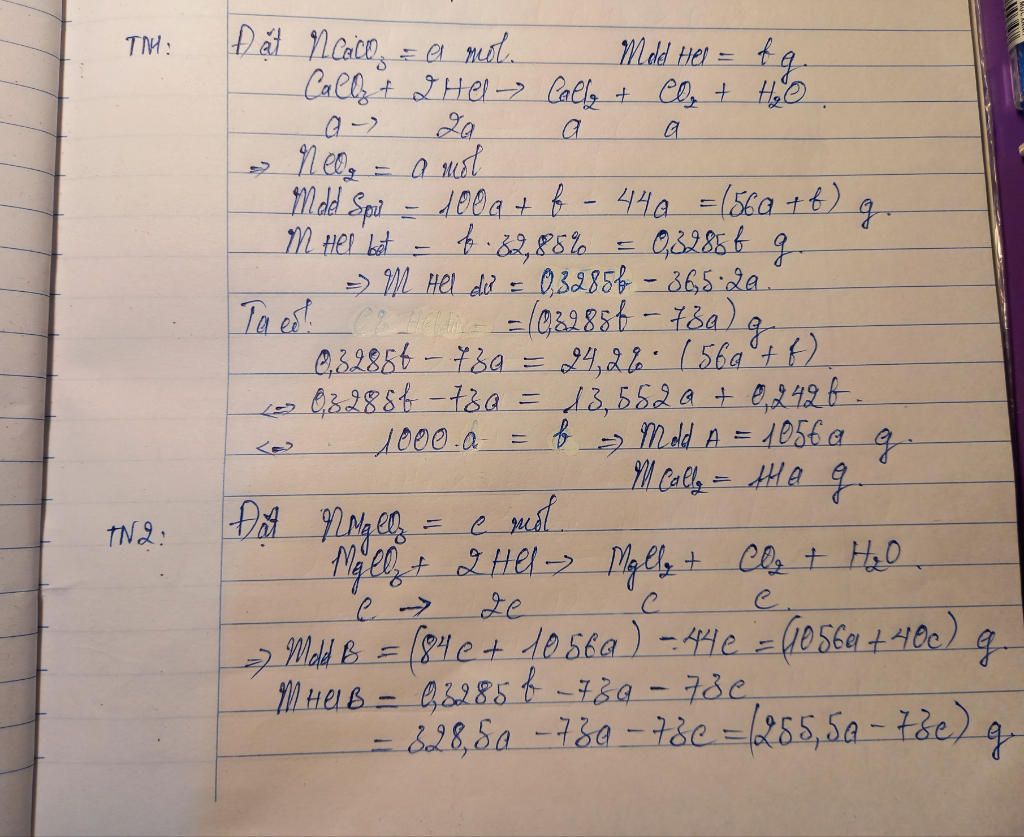 TN1: Đặt nCaCO₃ = a mol. mdd HCl = b g.
CaCO₃ + 2HCl → CaCl₂ + CO₂ + H₂O.
a → 2a a a
⇒ nCO₂ = a mol
mdd spứ = 100a + b - 44a = (56a + b) g.
mHCl bđ = b . 32,85% = 0,3285b g
⇒ m HCl dư = 0,3285b - 36,5.2a.
Ta có: = (0,3285b - 73a) g
0,3285b - 73a = 24,2% . (56a + b)
⇔ 0,3285b - 73a = 13,552a + 0,242b.
⇔ 1000.a = b ⇒ mdd A = 1056a g.
mCaCl₂ = 111a g.
TN2: Đặt nMgCO₃ = c mol.
MgCO₃ + 2HCl → MgCl₂ + CO₂ + H₂O.
c → 2c c c.
⇒ mdd B = (84c + 1056a) - 44c = (1056a + 40c) g.
mHCl B = 0,3285b - 73a - 73c
= 328,5a - 73a - 73c = (255,5a - 73c) g